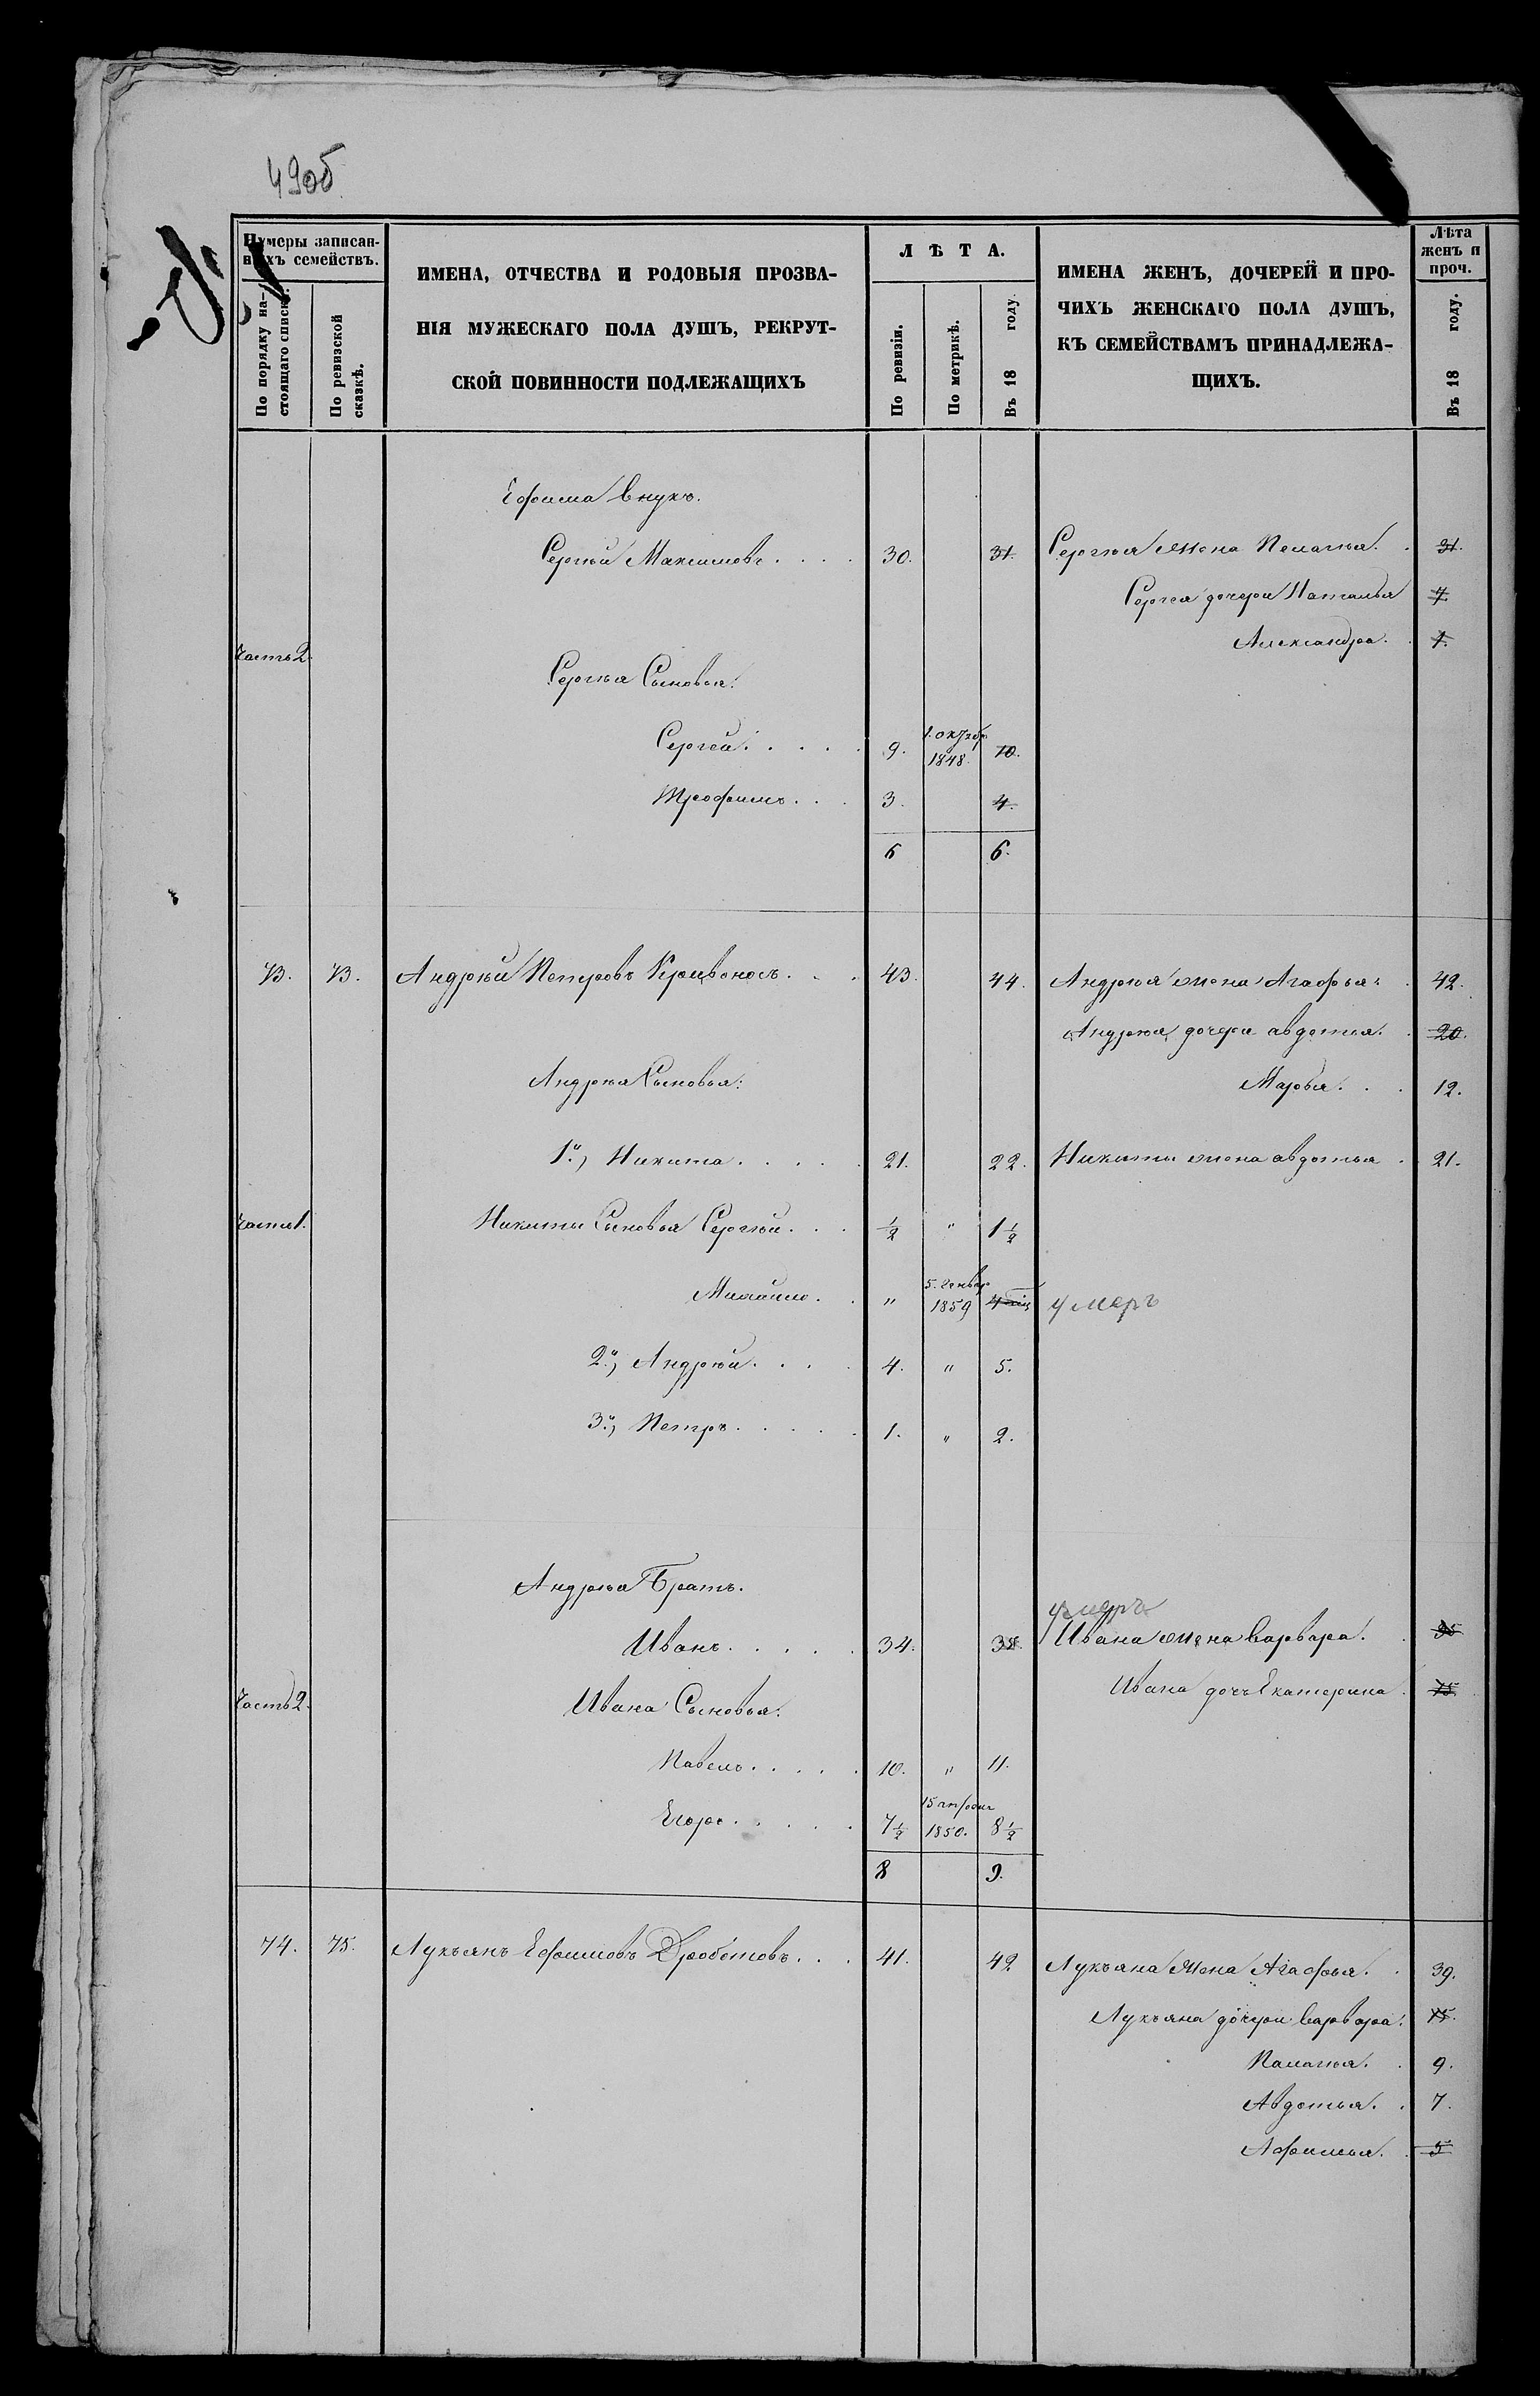 49об
Нумеры записан-
ныхъ семействъ.
По порядку на-
стоящаго списка.
По ревизской
сказкѣ.
ИМЕНА, ОТЧЕСТВА И РОДОВЫЯ ПРОЗВА-
НІЯ МУЖЕСКАГО ПОЛА ДУШЪ, РЕКРУТ-
СКОЙ ПОВИННОСТИ ПОДЛЕЖАЩИХЪ
ЛѢТА.
По ревизіи.
По метрикѣ.
Въ 18 году.
ИМЕНА ЖЕНЪ, ДОЧЕРЕЙ И ПРО-
ЧИХЪ ЖЕНСКАГО ПОЛА ДУШЪ,
КЪ СЕМЕЙСТВАМЪ ПРИНАДЛЕЖА-
ЩИХЪ.
Лѣта
женъ и
проч.
Въ 18 году.
Ефима внукъ.
Сергѣй Максимовъ. . . . 30. 31. Сергѣя жена Пелагѣя. . 31.
Сергея дочери Наталья 7.
Александра. . 1.
Часть 2.
Сергѣя Сыновья:
Сергей. . . . . 9. 1. октябр. 1848. 10.
Трофимъ. . . 3. 4.
6 6.
73. 73. Андрѣй Петровъ Кривоносъ. . . 43. 44. Андрѣя жена Агафья. . 42.
Андрѣя дочери авдотья. . 20.
Андрѣя Сыновья: Марья. . . 12.
1й, Никита. . . . . 21. 22. Никиты жена авдотья . 21.
Часть 1. Никиты Сыновья Сергѣй. . . ½ " 1½
Михайло. . " 5. генвар 1859 умеръ
2й, Андрѣй. . . . 4. " 5.
3й, Петръ. . . . . 1. " 2.
Андрѣя Братъ.
умеръ
Иванъ. . . . . 34. 35. Ивана жена варвара. . 35
Часть 2. Ивана Сыновья: Ивана дочь Екатерина. 15.
Павелъ. . . . . 10. " 11.
Егоръ. . . . . 7½ 1850. 8½
8 9.
74. 75. Лукъянъ Ефимовъ Дроботовъ. . . 41. 42 Лукъяна жена Агафья. . 39.
Лукъяна дочери варвара. 15.
Палагѣя. . 9.
Авдотья. . 7.
Афимья. . 5